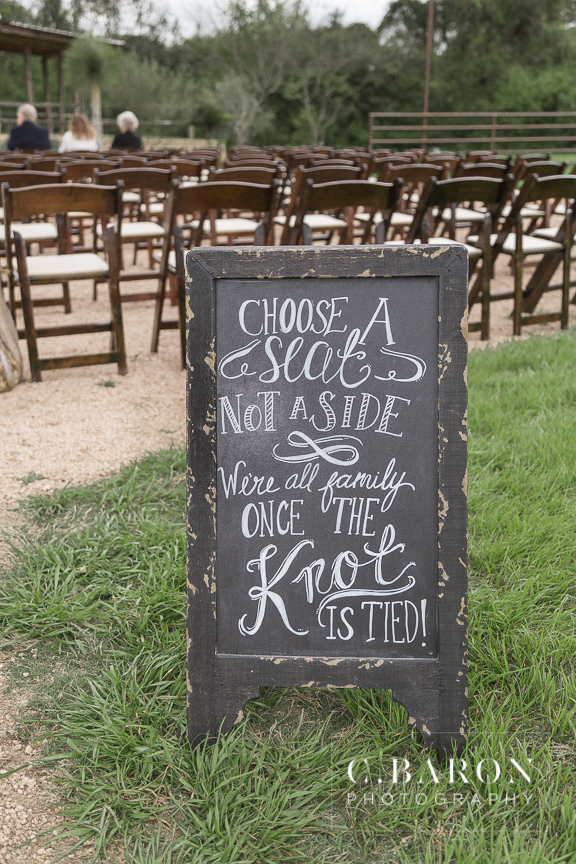 CHOOSE A
seat
NOT A SIDE
We're all family
ONCE THE
Knot
IS TIED!
C. BARON
PHOTOGRAPHY